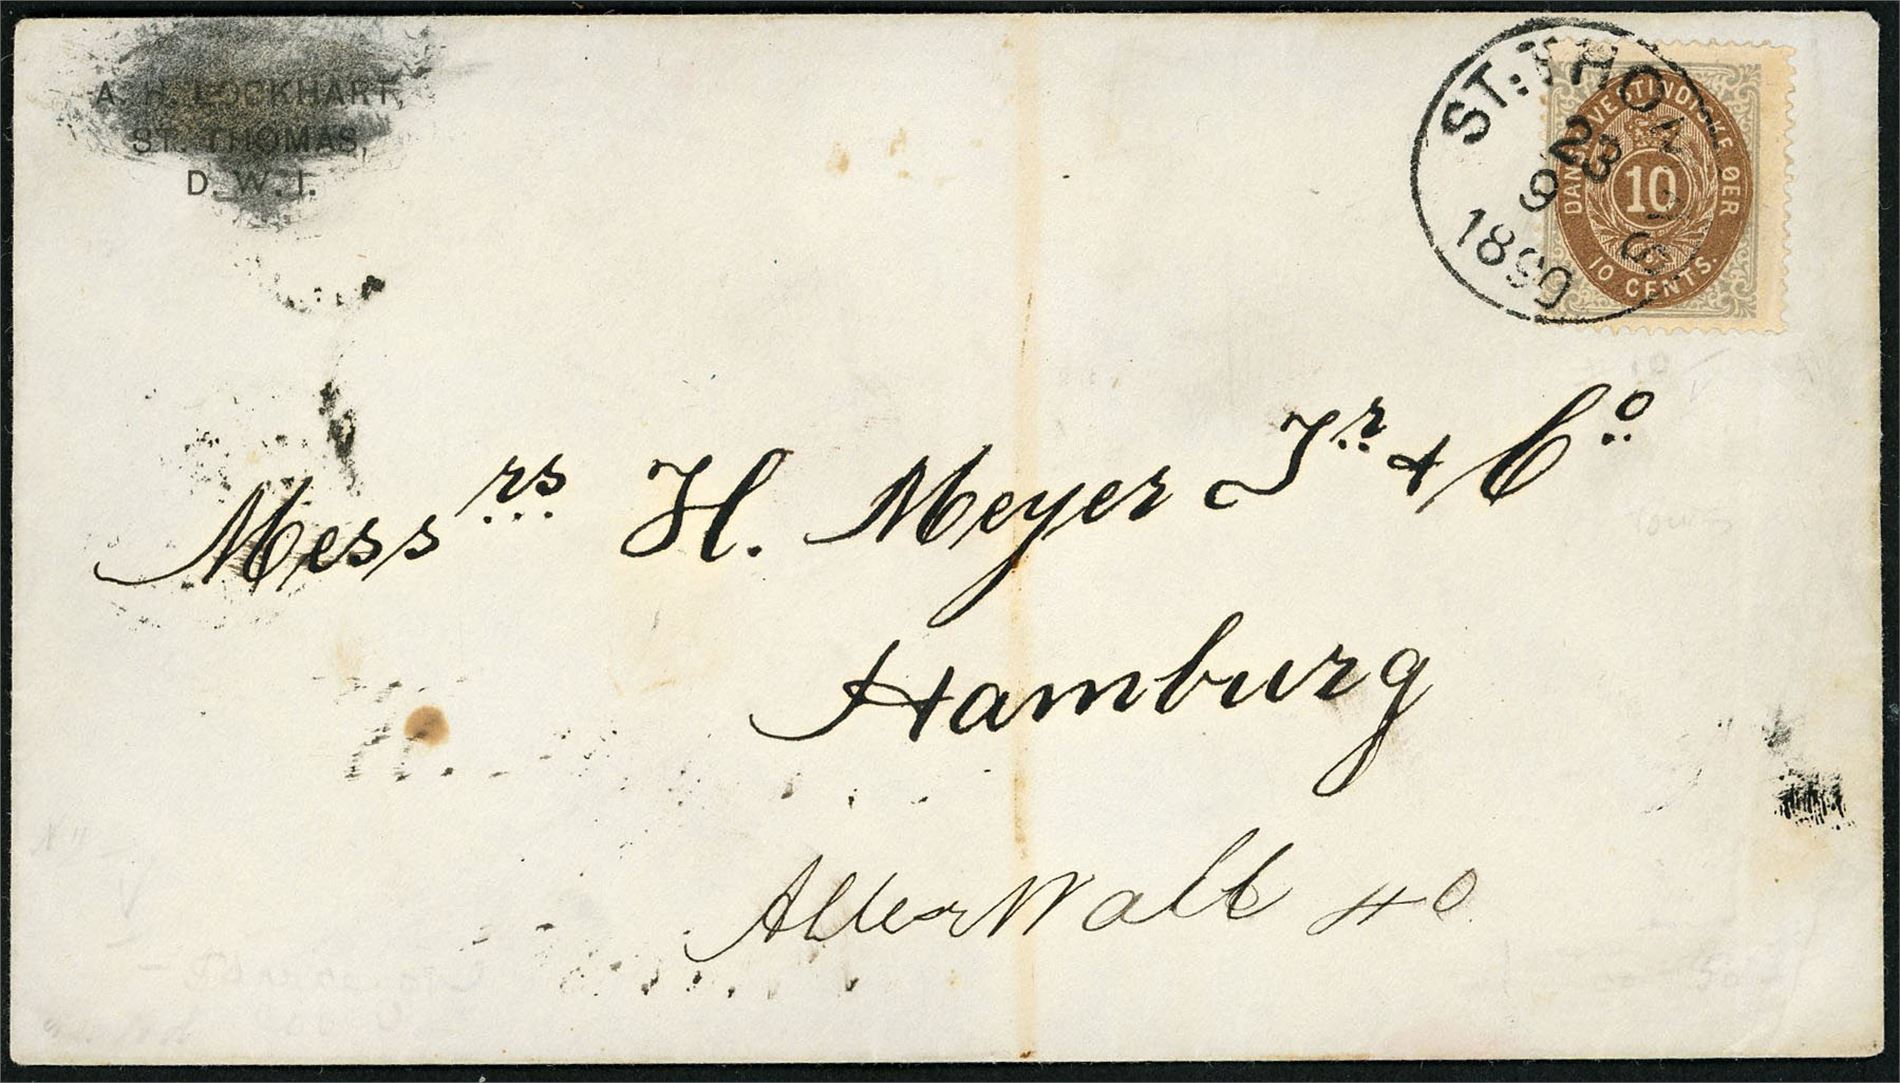 A. H. LOCKHART,
ST. THOMAS,
D. W. I.
ST: THOMAS
23
9
1890
DANSK VESTINDISKE ØER
10
10 CENTS.
Messrs H. Meyer Jr & Co
Hamburg
Aller Wall 40